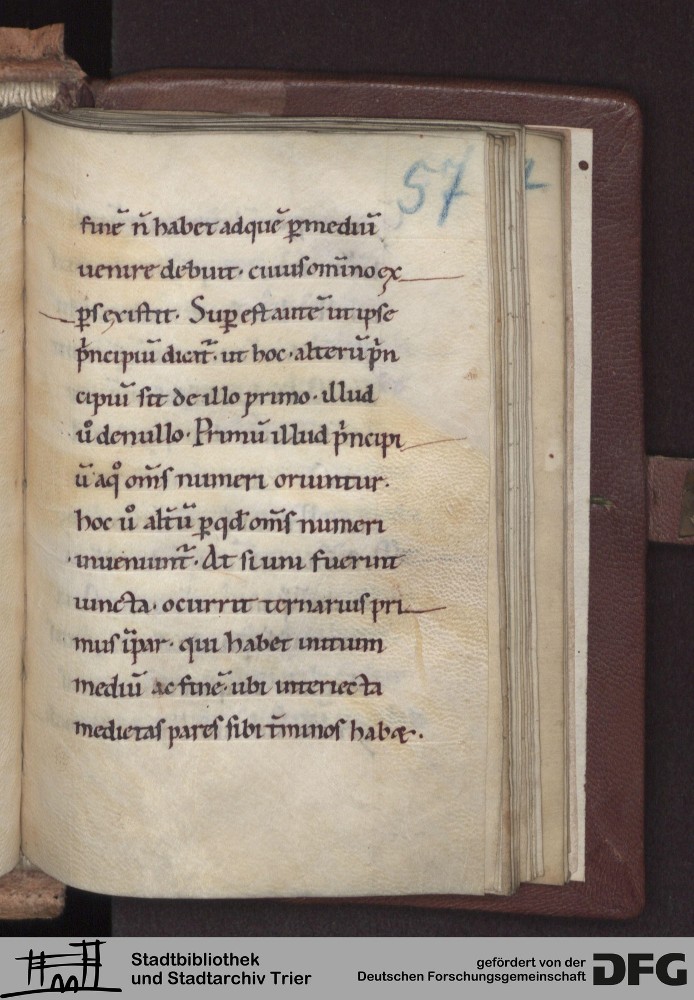 57
finē n̄ habet ad quē ꝑ mediū
uenire debuit· cuius om̄ino ex
ꝑs existit· Suꝑ est autē ut ipse
p̄ncipiū dicat᷒· ut hoc· alterū p̄n
cipiū sit de illo primo· illud
ů de nullo· Primū illud p̄ncipi
ū a qͦ om̄s numeri oriuntur·
hoc ů alt̄ū ꝑ qd̄ om̄s numeri
inueniunt᷒· At si uni fuerint
iuncta· occurrit ternarius pri
mus īpar· qui habet initium
mediū ac finē· ubi interiecta
medietas pares sibi t̄minos habet·
Stadtbibliothek
und Stadtarchiv Trier
gefördert von der
Deutschen Forschungsgemeinschaft
DFG